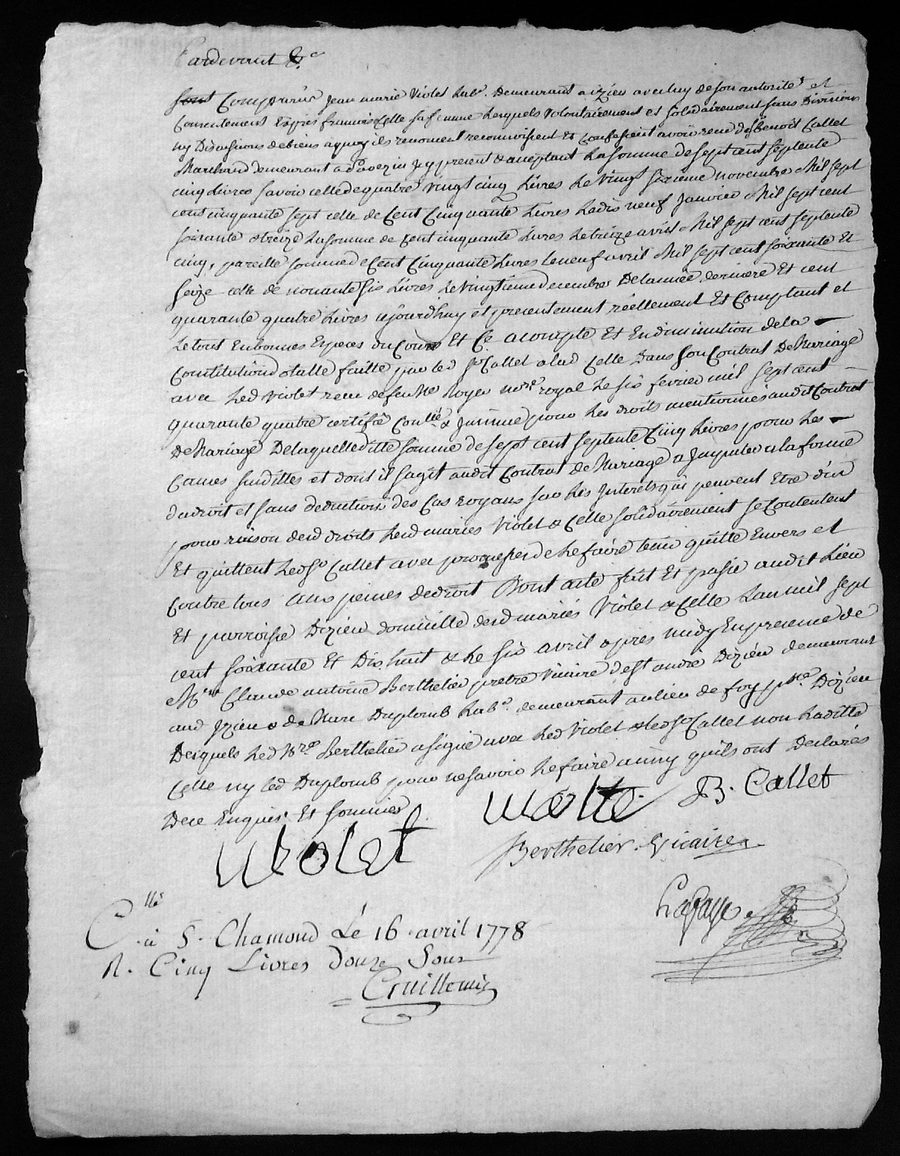 Pardevant &c
sont Comparus Jean marie Violet lab.r Demeurant a izieu avec luy de son autorité et
Consentement Expres francoise Celle sa femme lesquels Volontairement et solidairement sans Division
ny Discussions de biens a quoy ils renoncent reconnoissent Et Confessent avoir recu de Sr Benoit Callet
Marchand demeurant a Pavezin Jcy present & acceptant La somme de sept cent septente
cinq livres savoir celle de quatre vingt cinq livres le vingt sixieme novembre Mil sept
cens cinquante sept celle de Cent Cinquante livres le dix neuf Janvier Mil sept cent
soixante & treize La somme de Cent cinquante livres le treize avril Mil sept cent septente
cinq, pareille somme de Cent Cinquante livres le neuf avril Mil sept cent soixante Et
seize celle de nonante six livres le vingtieme decembre De l'année derniere Et cent
quarante quatre livres aujourdhuy et presentement réellement Et Comptant et
le tout En bonnes Especes du Cours Et Ce a compte Et En diminution de la
Constitution dotalle faitte par led Sr Callet a lad Celle Dans son Contrat De Mariage
avec led Violet recu de feu Me noyer nore royal le six fevrier mil sept cent
quarante quatre certifié Conllé & Jnsinué pour les droits mentionnés audit Contrat
De Mariage De laquelle ditte somme de sept cent septente Cinq livres pour les
Causes susdittes et dont il sagit audit Contrat de Mariage a Jmputer a la forme
du droit et sans deduction des Cas royaux sur les Jnterets qui peuvent Etre dûs
pour raison desd droits lesd mariés Violet & Celle solidairement se Contentent
Et quittent led Sr Callet avec promesse de le faire tenir quitte Envers et
Contre tous aux peines de droit Dont acte fait Et passé audit lieu
Et parroisse Dizieu domicille desd mariés Violet & Celle Lan mil sept
cent soixante Et Dix huit & le six avril apres midy En presence de
Mre Claude antoine Berthelier pretre Vicaire de St andré Dizieu demeurant
aud Izieu & de Marc Duplomb lab.r demeurant au lieu de foy psse Dizieu
Desquels led Sr Berthelier a signé avec led Violet & led Sr Callet non laditte
Celle ny led Duplomb pour ne savoir le faire ainsy quils ont Declarés
De ce Enquis Et sommés
B. Callet
violet
Berthelier. Vicaire
Cllé
a S. Chamond Lé 16 avril 1778
R. Cinq Livres Douze Sous